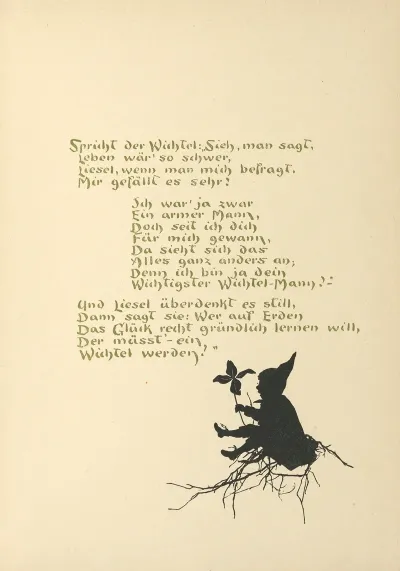 Spricht der Wichtel: „Sieh, man sagt,
Leben wär' so schwer,
Liesel, wenn man mich befragt,
Mir gefällt es sehr!
Ich war' ja zwar
Ein armer Mann,
Doch seit ich dich
Für mich gewann,
Da sieht sich das
Alles ganz anders an;
Denn ich bin ja dein
Wichtigster Wichtel-Mann!"
Und Liesel überdenkt es still,
Dann sagt sie: Wer auf Erden
Das Glück recht gründlich lernen will,
Der müsst' ein
Wichtel werden!"